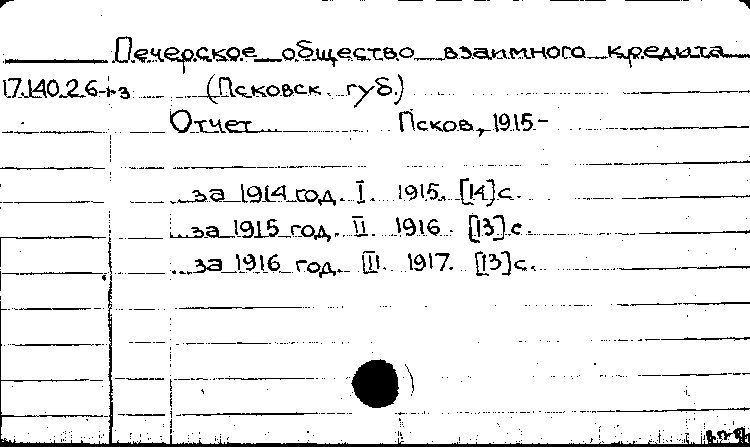 Печерское общество взаимного кредита
17.140.2.6-1-3 (Псковск. губ.)
Отчет... Псков, 1915-
...за 1914 год. I. 1915. [14] с.
...за 1915 год. II. 1916. [13] с.
...за 1916 год. III. 1917. [13] с.